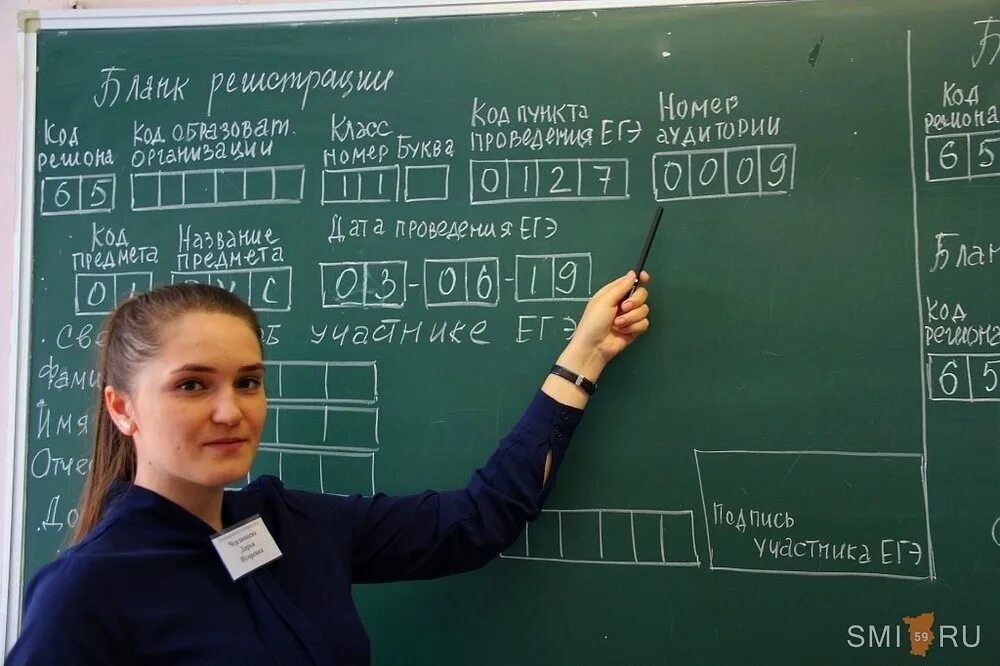 Бланк регистрации
Код региона
65
Код образоват. организации
Класс номер Буква
11
Код пункта проведения ЕГЭ
0127
Номер аудитории
0009
Код предмета
01
Название предмета
РУС
Дата проведения ЕГЭ
03-06-19
участнике ЕГЭ
Имя
Подпись
участника ЕГЭ
Код
региона
65
Код
региона
65
Дарья
Игоревна
SMI 59 RU